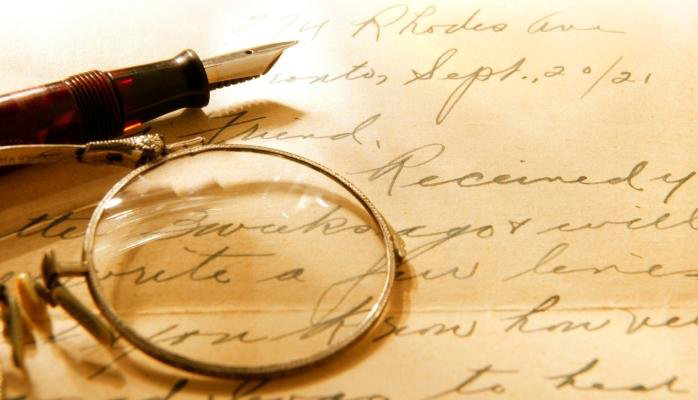 274 Rhodes Ave
ronto, Sept., 20/21
Friend,
Received y
tter 3 weeks ago & will
write a few lines
you know how ver
always to hear